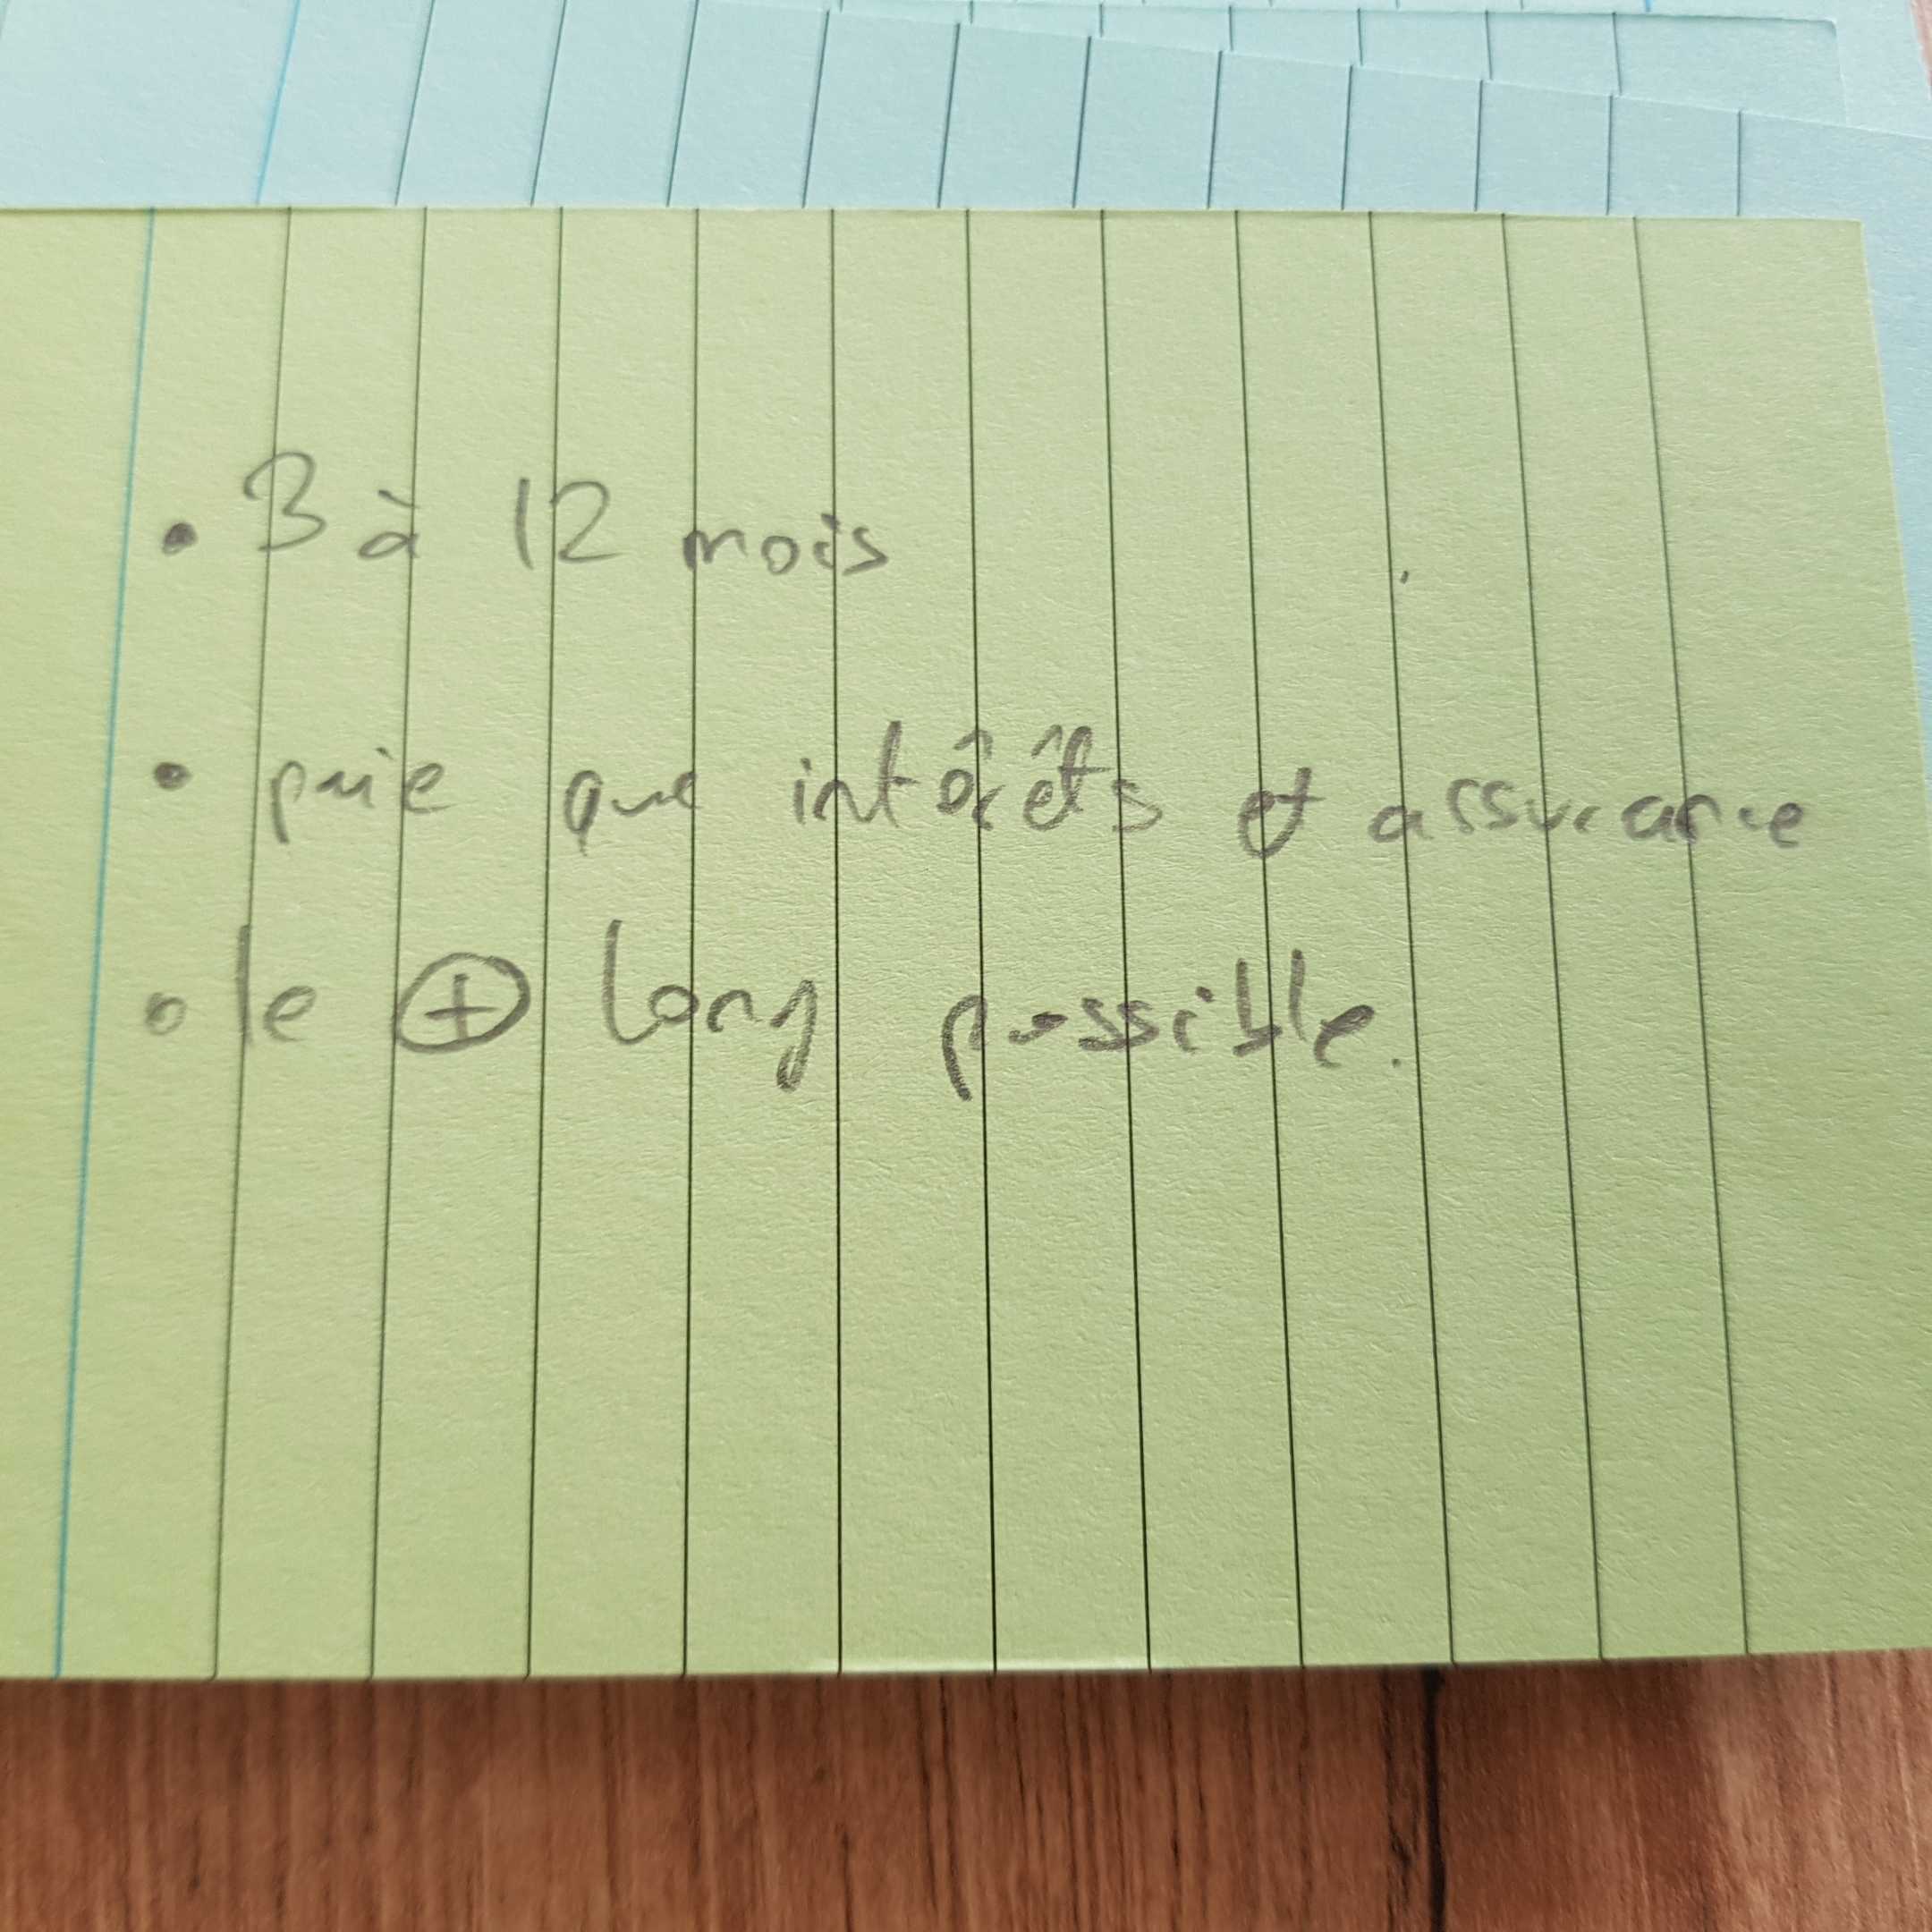 • 3 à 12 mois
• paie que intôrêts et assurance
o le ⊕ long possible.